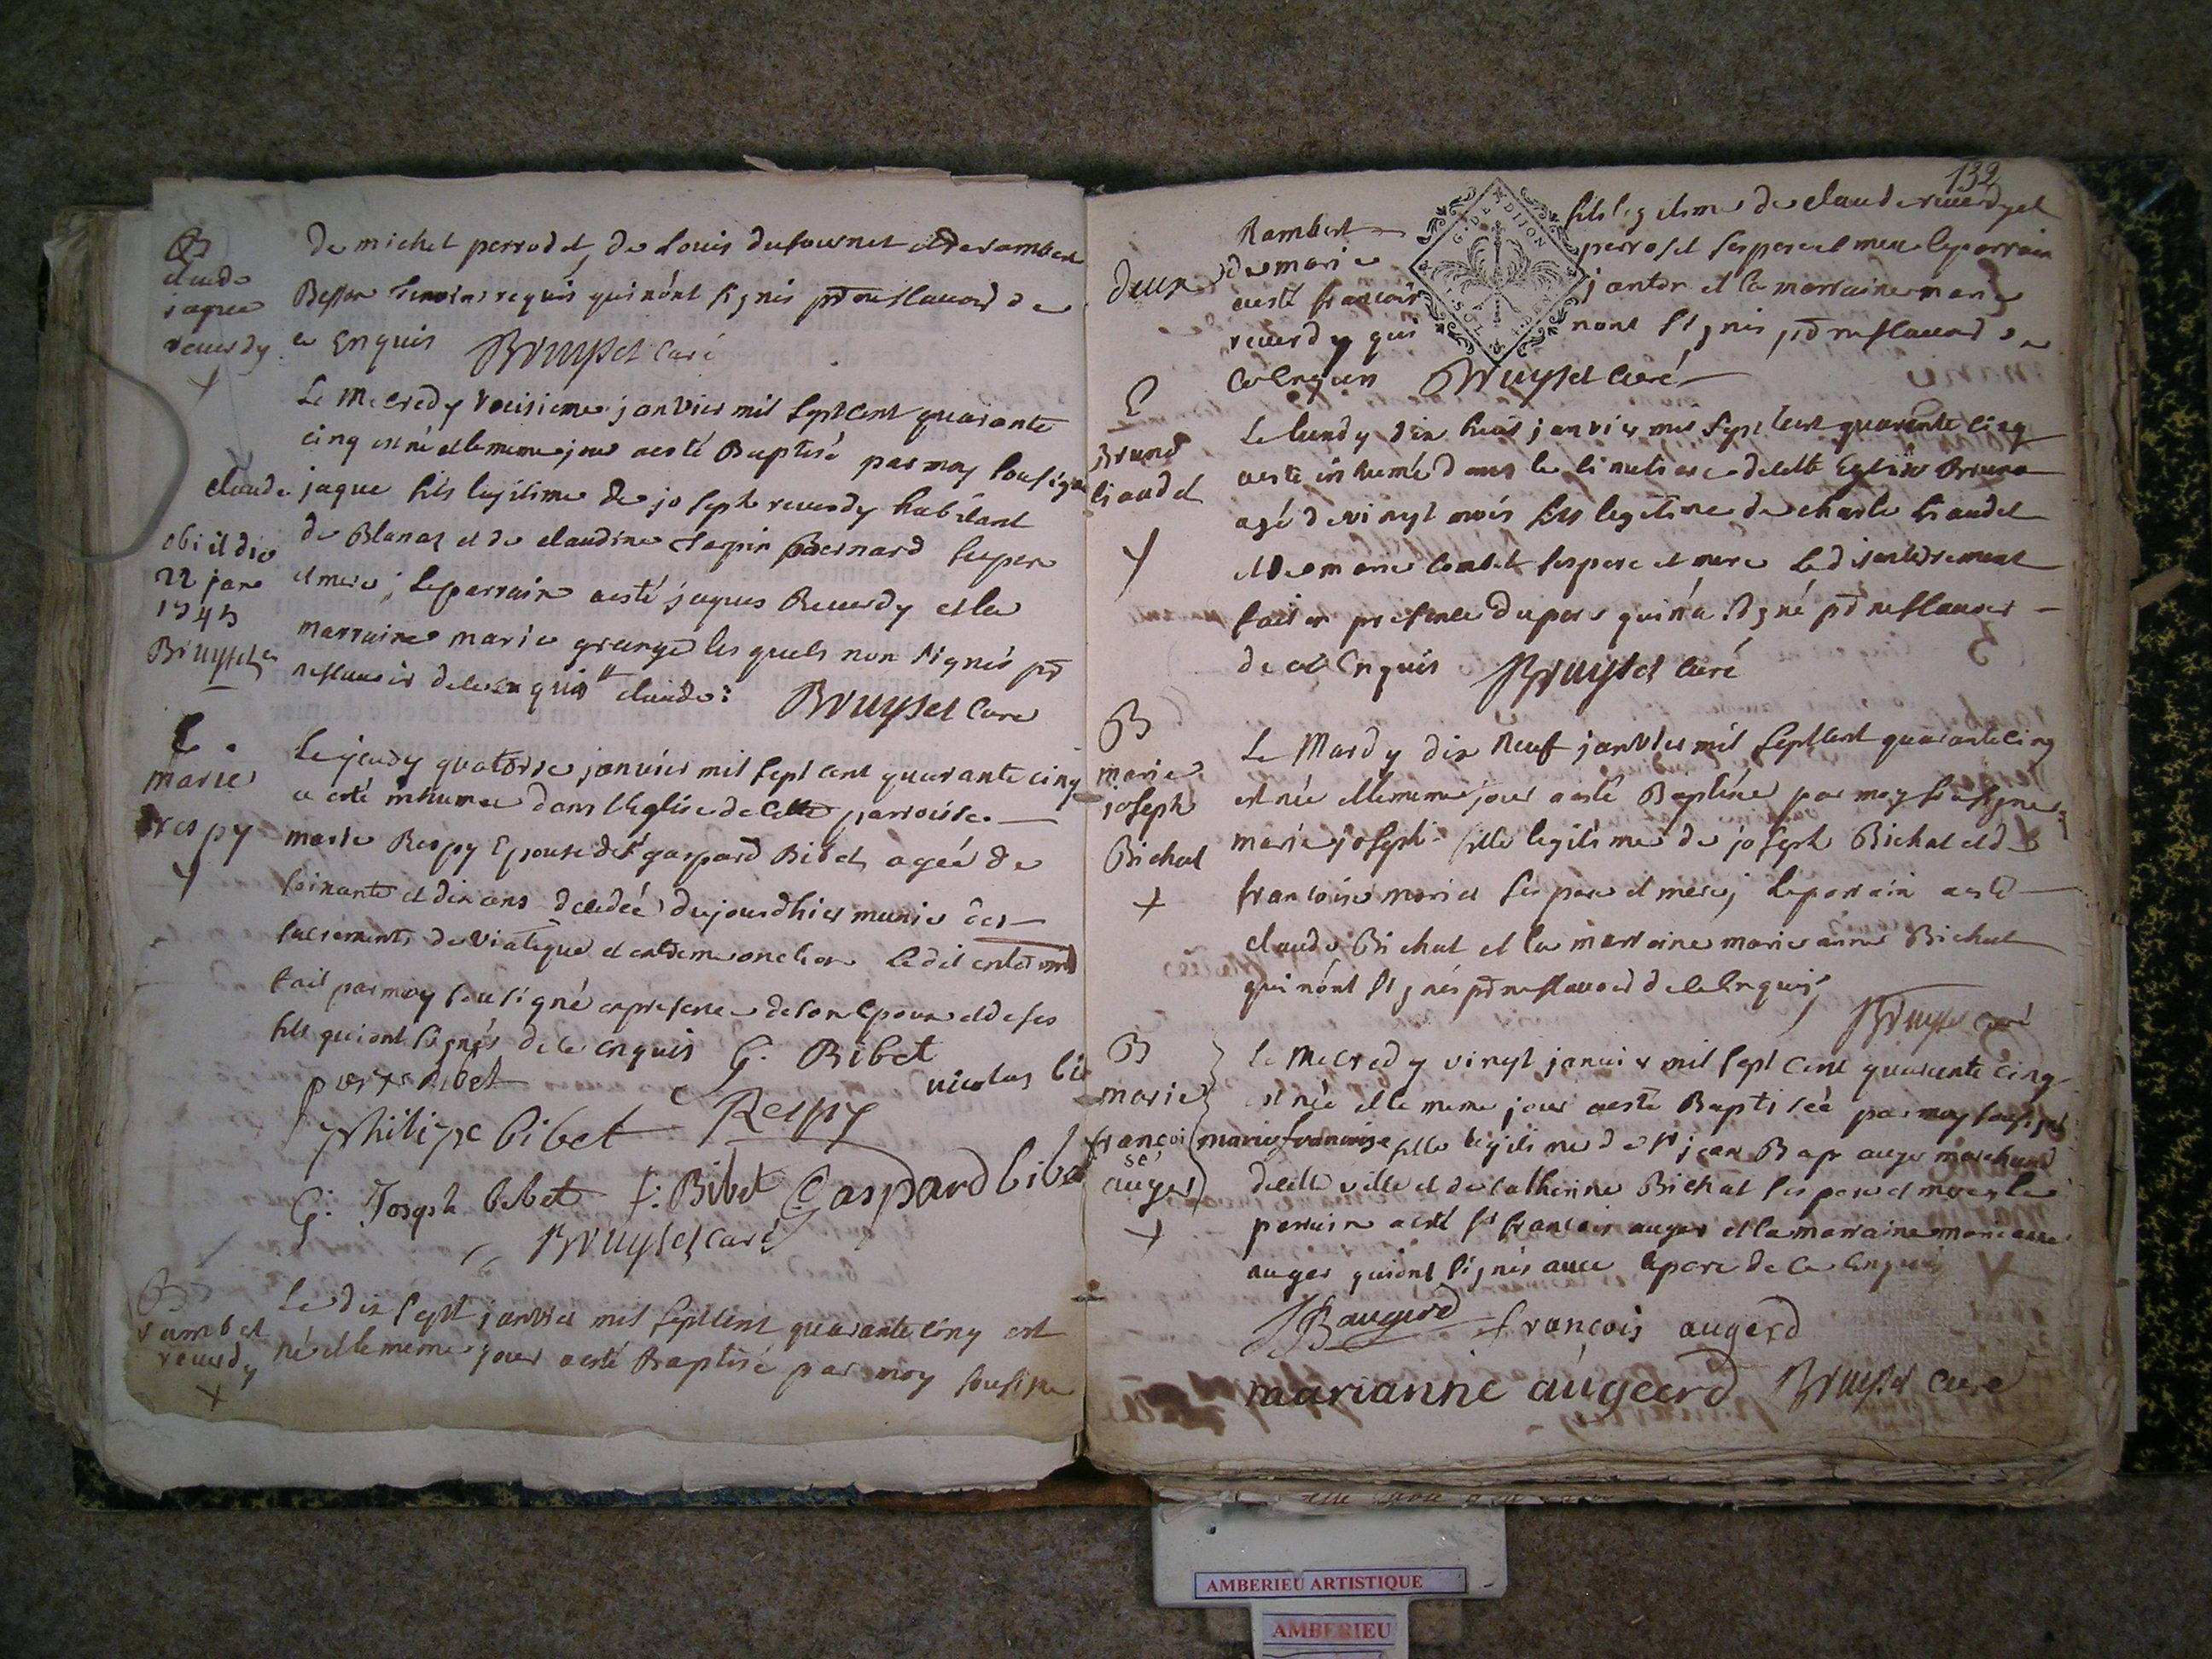 B
claude
jaque
reuerdy
de michel perrodet, de Louis dufournet et de rambert
Besson temoins requis qui n'ont signés pr ne scauoir de
ce Enquis Bruyset Curé
Le Mecredy troisieme janvier mil sept cent quarante
cinq est né et le meme jour a esté Baptisé par moy soussigné
claude jaque fils legitime de joseph reuerdy habitant
de Blanaz et de claudine Bernard ses pere
et mere; le parrain a esté jaques Reuerdy et la
marraine marie grange les quels n'on signés pr
ne scauoir de ce enquis claude: Bruyset Curé
obiit die
22 jan
1745
Bruyset
marie
respy
Le jeudy quatorze janvier mil sept cent quarante cinq
a esté inhumée dans l'Eglise de cette parroisse
marie Respy Epouse de sr gaspard Bibet agée de
soixante et dix ans decedée du jourdhier munie des
sacrements de viatique et extreme onction le dit enterremt
fait par moy soussigné en presence de son Epoux et de ses
fils qui ont signés de ce enquis G. Bibet
pierre bibet nicolas bi
philipe bibet Respy
G: Joseph bibet f: Bibet Gaspard bibet
Bruyset Curé
B
rambert
reuerdy
Le dix sept janvier mil sept cent quarante cinq est
né et le meme jour a esté Baptisé par moy soussigné
132
G. DE DIJON
Rambert fils legitime de claude reuerdy et
de marie perroset ses pere et mere le parrain
a esté francois jantet et la marraine marie
reuerdy qui n'ont signés pr ne scauoir de
ce Enquis Bruyset Curé
Bruno
liaudet
Le lundy dix huit janvier mil sept cent quarante cinq
a esté inhumé dans le cimetiere de cette Eglise Bruno
agé de vingt mois fils legitime de charle liaudet
et de marie ses pere et mere le dit enterrement
fait en presence du pere qui n'a signé pr ne scauoir
de ce Enquis Bruyset Curé
B
marie
joseph
Bichat
Le Mardy dix Neuf janvier mil sept cent quarante cinq
est née et le meme jour a esté Baptisée par moy soussigné
marie joseph fille legitime de joseph Bichat et de
francoise ses pere et mere; le parrain a esté
claude Bichat et la marraine marie anne Bichat
qui n'ont signés pr ne scauoir de ce Enquis
Bruyset Curé
B
marie
françoi
se
auger
Le Mecredy vingt janvier mil sept cent quarante cinq
est née et le meme jour a esté Baptisée par moy soussigné
marie francoise fille legitime de sr jean Bapt auger marchand
de cette ville et de catherine Bichat ses pere et mere le
parrain a esté sr francois auger et la marraine marie anne
auger qui ont signés auec le pere de ce Enquis
JB augerd françois augerd
marianne augeerd Bruyset Curé
AMBERIEU ARTISTIQUE
AMBERIEU